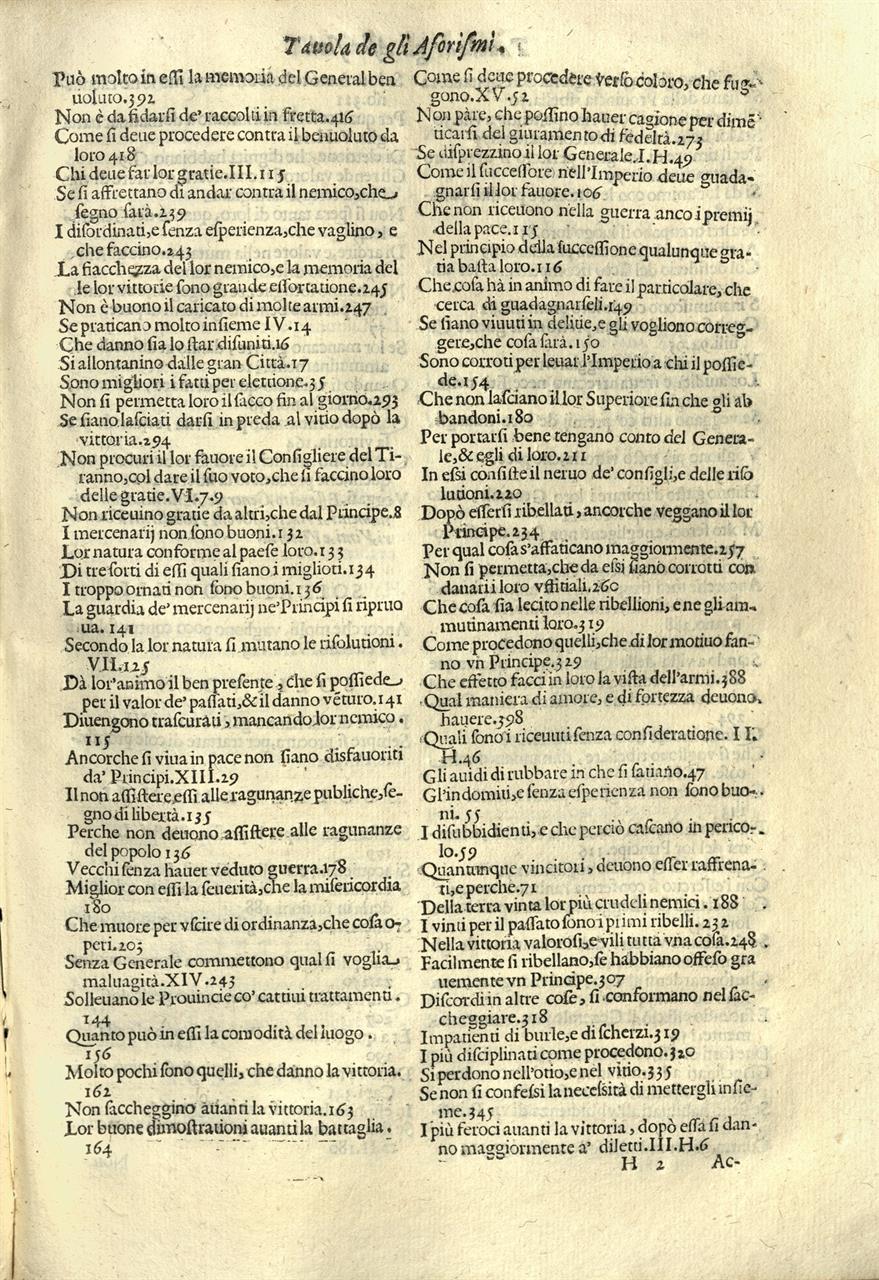 Tauola de gli Aforismi.
Può molto in essi la memoria del General ben
uoluto.392
Non è da fidarsi de' raccolti in fretta.416
Come si deue procedere contra il benuoluto da
loro 418
Chi deue far lor gratie.III.115
Se si affrettano di andar contra il nemico,che
segno sarà.239
I disordinati,e senza esperienza,che vaglino, e
che faccino.243
La fiacchezza del lor nemico,e la memoria del
le lor vittorie sono grande essortatione.245
Non è buono il caricato di molte armi.247
Se praticano molto insieme IV.14
Che danno sia lo star disuniti.16
Si allontanino dalle gran Città.17
Sono migliori i fatti per elettione.35
Non si permetta loro il sacco fin al giorno.293
Se siano lasciati darsi in preda al vitio dopò la
vittoria.294
Non procuri il lor fauore il Consigliere del Ti-
ranno,col dare il suo voto,che si faccino loro
delle gratie.VI.7.9
Non riceuino gratie da altri,che dal Principe.8
I mercenarij non sono buoni.132
Lor natura conforme al paese loro.133
Di tre sorti di essi quali siano i miglioti.134
I troppo ornati non sono buoni.136
La guardia de' mercenarij ne' Principi si ripruo
ua. 141
Secondo la lor natura si mutano le risolutioni.
VII.125
Dà lor'animo il ben presente, che si possiede
per il valor de' passati,& il danno vēturo.141
Diuengono trascurati, mancando lor nemico.
115
Ancorche si viua in pace non siano disfauoriti
da' Principi.XIII.29
Il non assistere essi alle ragunanze publiche,se-
gno di libertà.135
Perche non deuono assistere alle ragunanze
del popolo 136
Vecchi senza hauer veduto guerra.178
Miglior con essi la seuerità,che la misericordia
180
Che muore per vscire di ordinanza,che cosa o-
peri.203
Senza Generale commettono qual si voglia
maluagità.XIV.243
Solleuano le Prouincie co' cattiui trattamenti.
144
Quanto può in essi la comodità del luogo.
156
Molto pochi sono quelli, che danno la vittoria.
162
Non saccheggino auanti la vittoria.163
Lor buone dimostrationi auanti la battaglia.
164
Come si deue procedere verso coloro, che fug-
gono.XV.52
Non pàre, che possino hauer cagione per dimē
ticarsi del giuramento di fedeltà.273
Se disprezzino il lor Generale.I.H.49
Come il successore nell'Imperio deue guada-
gnarsi il lor fauore.106
Che non riceuono nella guerra anco i premij
della pace.115
Nel principio della successione qualunque gra-
tia basta loro.116
Che cosa hà in animo di fare il particolare, che
cerca di guadagnarseli.149
Se siano viuuti in delitie,e gli vogliono correg-
gere,che cosa sarà.150
Sono corroti per leuar l'Imperio a chi il possie-
de.154
Che non lasciano il lor Superiore fin che gli ab
bandoni.180
Per portarsi bene tengano conto del Genera-
le,& egli di loro.211
In essi consiste il neruo de' consigli,e delle riso
lutioni.220
Dopò essersi ribellati, ancorche veggano il lor
Principe.234
Per qual cosa s'affaticano maggiormente.257
Non si permetta,che da essi siano corrotti con
danari i loro vffitiali.260
Che cosa sia lecito nelle ribellioni, e ne gli am-
mutinamenti loro.319
Come procedono quelli,che di lor motiuo fan-
no vn Principe.329
Che effetto facci in loro la vista dell'armi.388
Qual maniera di amore, e di fortezza deuono
hauere.398
Quali sono i riceuuti senza consideratione. II.
H.46
Gli auidi di rubbare in che si satiano.47
Gl'indomiti,e senza esperienza non sono buo-
ni. 55
I disubbidienti, e che perciò cascano in perico-
lo.59
Quantunque vincitori, deuono esser raffrena-
ti,e perche.71
Della terra vinta lor più crudeli nemici. 188
I vinti per il passato sono i primi ribelli. 232
Nella vittoria valorosi,e vili tutta vna cosa.248
Facilmente si ribellano,se habbiano offeso gra
uemente vn Principe.307
Discordi in altre cose, si conformano nel sac-
cheggiare.318
Impatienti di burle,e di scherzi.319
I più disciplinati come procedono.320
Si perdono nell'otio,e nel vitio.335
Se non si confessi la necessità di mettergli insie-
me.345
I più feroci auanti la vittoria, dopò essa si dan-
no maggiormente a' diletti.III.H.6
H 2 Ac-